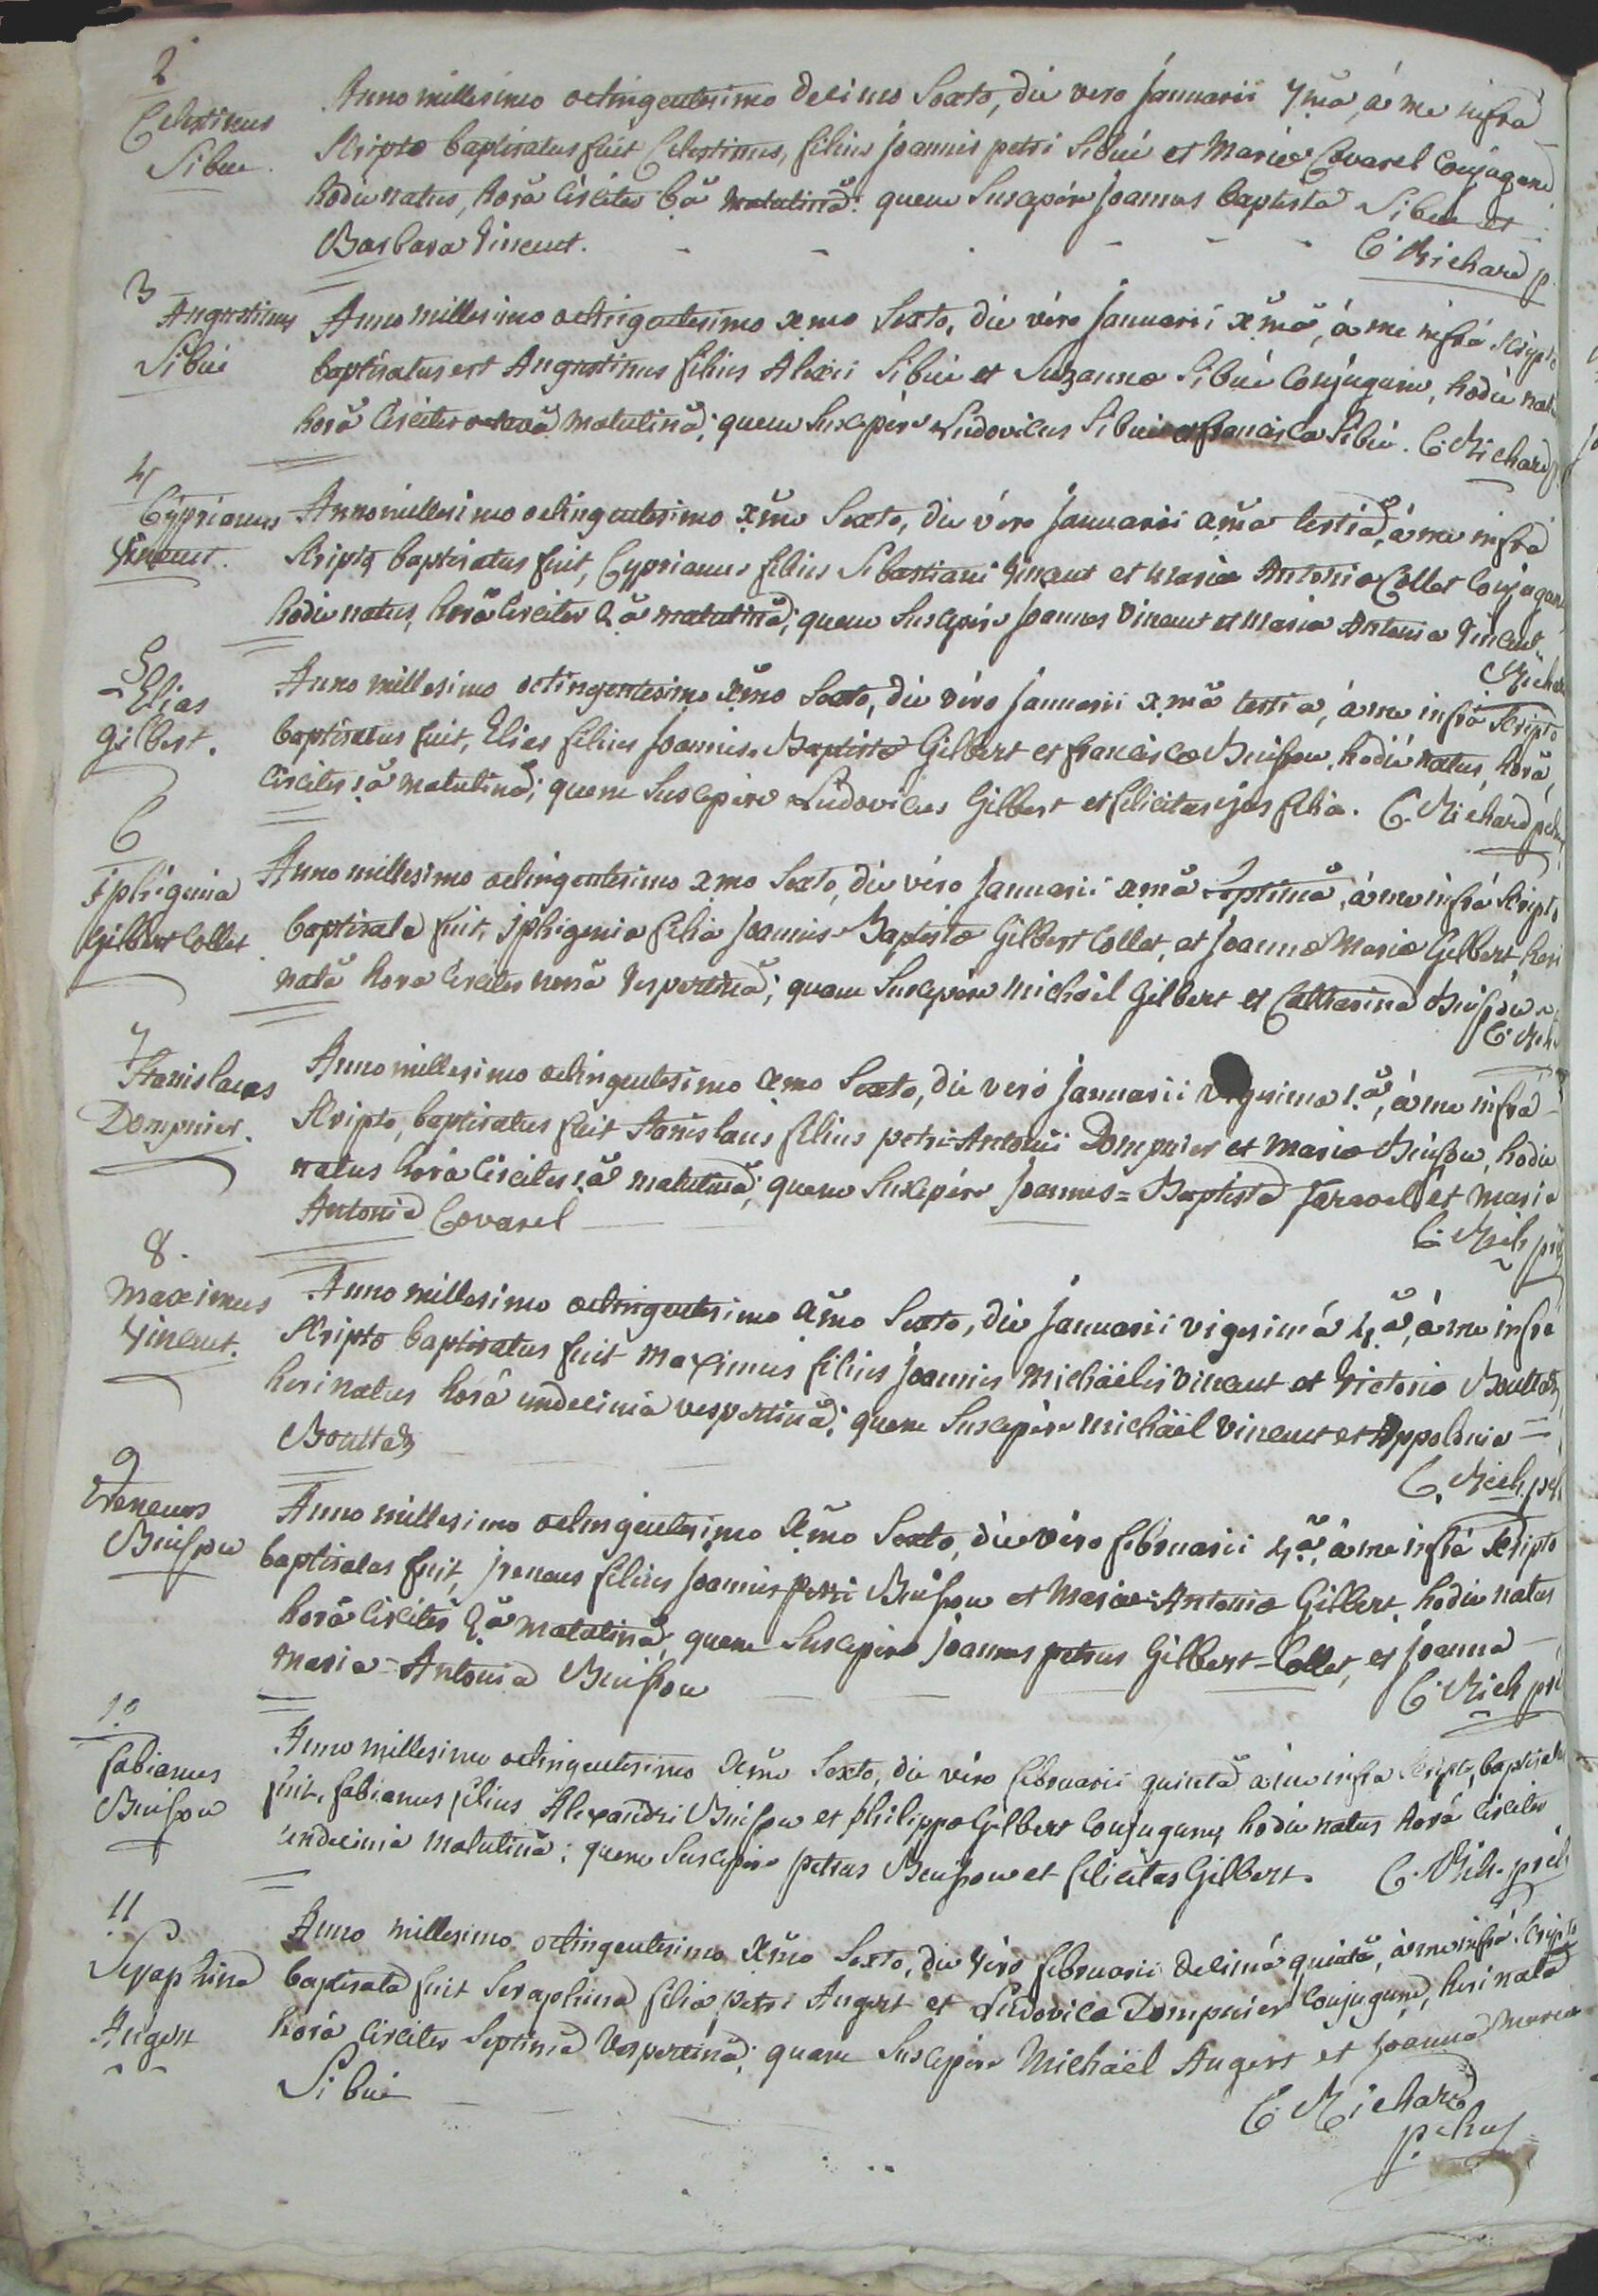 2
Celestinus
Sibue.
Anno millesimo octingentesimo decimo Sexto, die vero januarii 7.mâ, à me infrà
Scripto baptisatus fuit Celestinus, filius joannis petri Sibué et Mariæ Covarel Conjugum
hodie natus, horâ Circiter 6.â matutinâ: quem Suscepére joannes baptista Sibue et
Barbara Vincent.
C. Richard p.
3
Augustinus
Sibué
Anno millesimo octingentesimo xmo Sexto, die véro januarii x.mâ, à me infrà Scripto
baptisatus est Augustinus filius Alexii Sibué et Suzannæ Sibué Conjugum, hodie natus
horâ Circiter octavâ matutinâ; quem Suscepére Ludovicus Sibué et francisca Sibué. C. Richard p.
4
Cyprianus
Vincent.
Anno millesimo octingentesimo x.mo Sexto, die véro januarii x.mâ tertiâ, à me infrà
Scripto baptisatus fuit, Cyprianus filius Sebastiani Vincent et Mariæ Antoniæ Collet Conjugum
hodie natus, horâ Circiter 2.â matutinâ; quem Suscepére joannes Vincent et Maria Antonia Vincent.
C. Richar
5
Elias
gilbert.
Anno millesimo octingentesimo x.mo Sexto, die véro januarii x.mâ tertiâ, à me infrà Scripto
baptisatus fuit, Elias filius joannis-Baptistæ Gilbert et franciscæ Buisson, hodié natus, horâ,
Circiter 1.â matutinâ; quem Suscepére Ludovicus Gilbert et felicitas ejus filia. C. Richard pchus
6
iphigenia
Gilbert Collet
Anno millesimo octingentesimo xmo Sexto, die véro januarii x.mâ Septimâ, à me infrà Scripto
baptisata fuit, iphigenia filia joannis-Baptistæ Gilbert Collet, et joannæ Mariæ Gilbert, heri
nata hora Circiter nonâ Vespertinâ; quam Suscepére Michaël Gilbert et Catharina Buisson
C. Rich
7
Stanislaus
Dompnier.
Anno millesimo octingentesimo xmo Sexto, die verò januarii Vigesima 1.â, à me infrà
Scripto, baptisatus fuit Stanislaus filius petri-Antonii Dompnier et Mariæ Buisson, hodie
natus horâ Circiter 1.â matutinâ; quem Suscepére joannes=Baptista Jaravel et Maria
Antonia Covarel
C. Rich p
8.
Maximus
Vincent.
Anno millesimo octingentesimo x.mo Sexto, die januarii vigesimâ 4.â, à me infrà
Scripto baptisatus fuit Maximus filius joannis Michaëlis Vincent et Victoriæ Bouttaz,
heri natus horâ undecimâ vespertinâ; quem Suscepére Michaël Vincent et Appolonia
Bouttaz
C. Rich. pch
9
Ireneus
Buisson
Anno millesimo octingentesimo x.mo Sexto, die véro februarii 4.â, à me infrà Scripto
baptisatus fuit, ireneus filius joannis petri Buisson et Mariæ-Antoniæ Gilbert, hodie natus
horâ Circiter 2.â matutinâ, quem Suscepére joannes petrus Gilbert-Collet, et joanna
Maria-Antonia Buisson
C. Rich p
10
fabianus
Buisson
Anno millesimo octingentesimo x.mo Sexto, die véro februarii quintâ à me infra Scripto, baptisatus
fuit, fabianus filius Alexandri Buisson et philippæ Gilbert Conjugum, hodie natus horâ Circiter
undecimâ matutinâ; quem Suscepére petrus Buisson et felicitas Gilbert. C. Rich. pch
11
Seraphina
Augert
Anno millesimo octingentesimo x.mo Sexto, die véro februarii decimâ quintâ, à me infrà Scripto
baptisata fuit Seraphina filia petri Augert et Ludovicæ Dompnier Conjugum, heri nata
horâ Circiter Septimâ Vespertinâ; quam Suscepére Michaël Augert et joanna Maria
Sibué
C. Richard
pchus